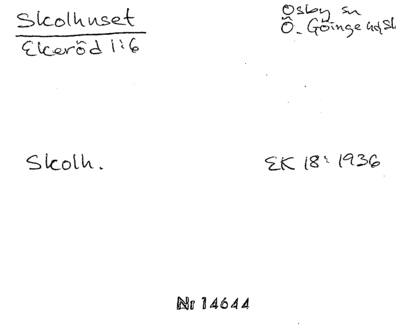 Skolhuset
Ekeröd 1:6
Osby sn
Ö. Göinge hd Sk
Skolh.
EK 18: 1936
Nr 14644